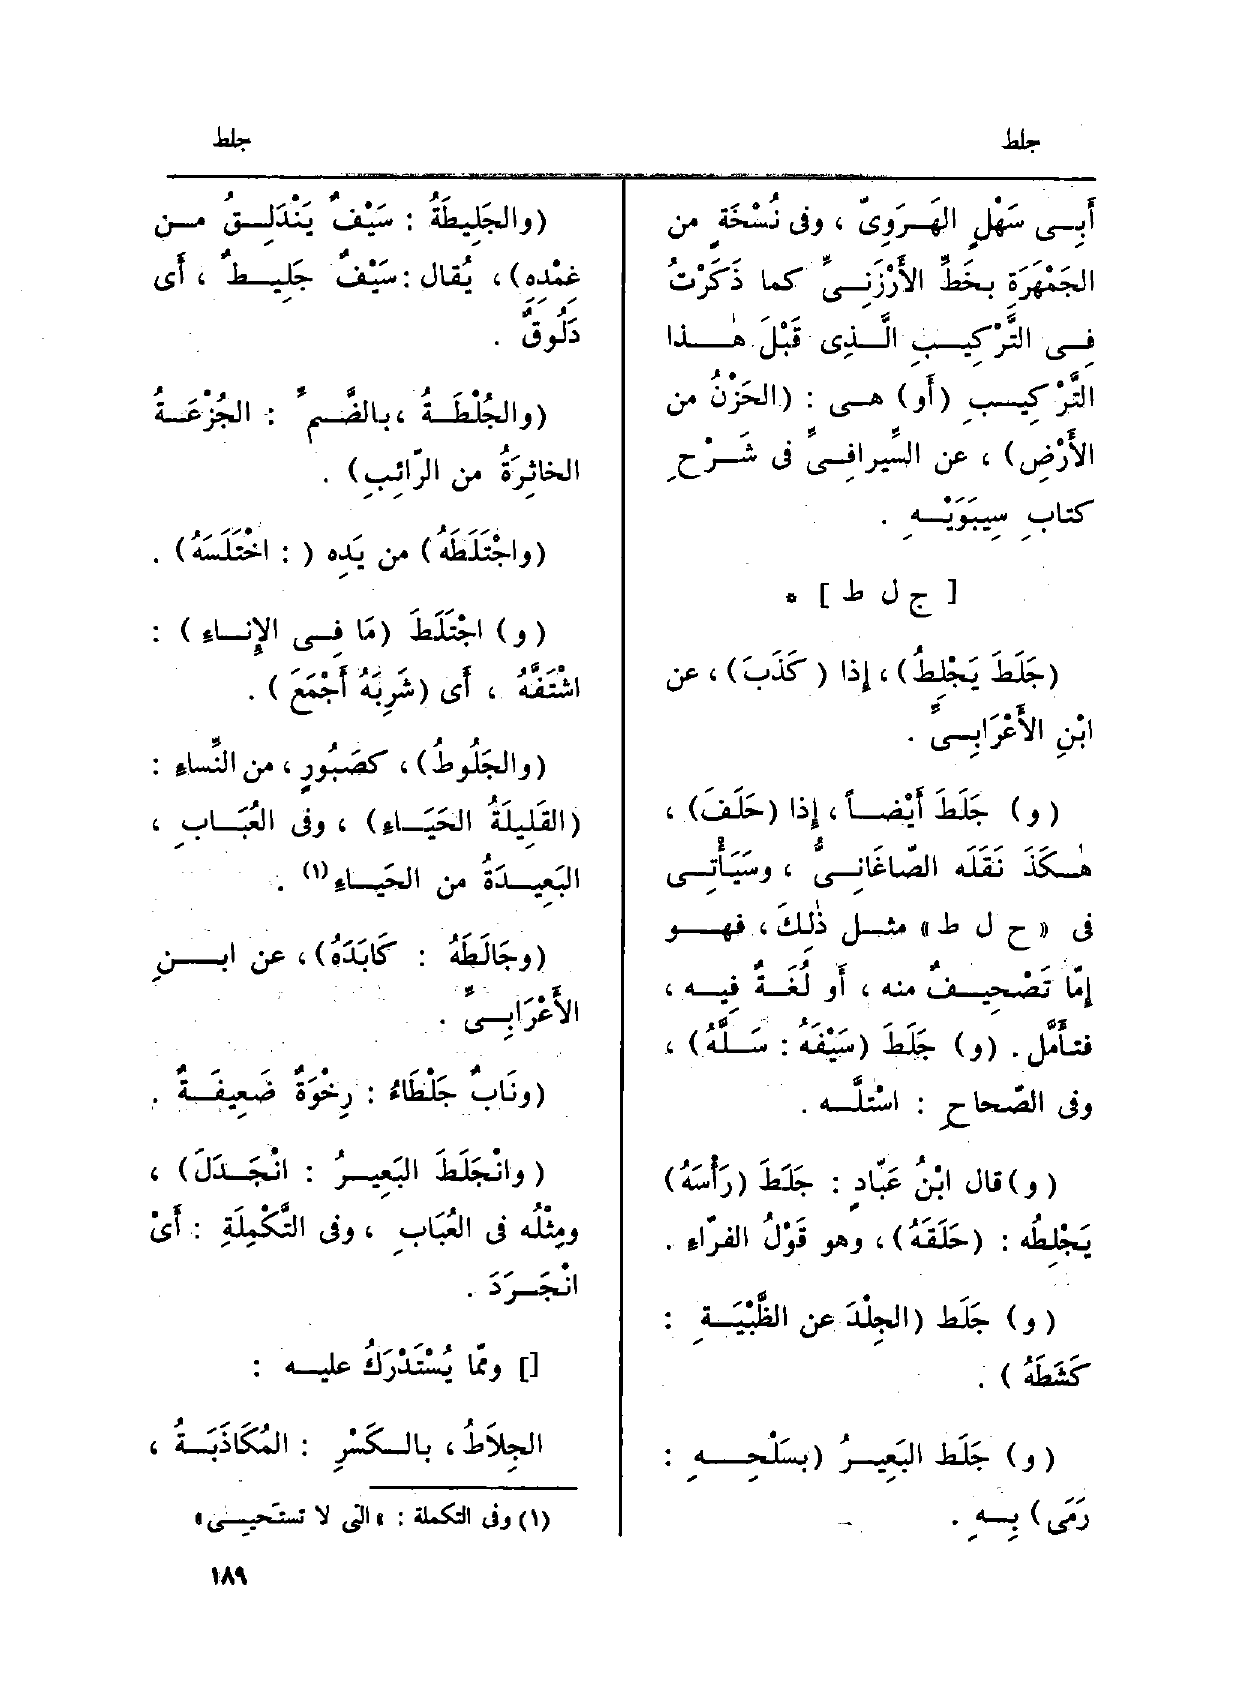 جلط
جلط
أَبِى سَهْلٍ الهَرَوِىّ ، وفى نُسْخَةٍ من
الجَمْهَرَةِ بخَطِّ الأَرْزَنِىِّ كما ذَكَرْتُ
فِى التَّرْكِيبِ الَّذِى قَبْلَ هٰذا
التَّرْكِيبِ (أَو) هى : (الحَزْنُ من
الأَرْضِ) ، عن السِّيرافِىِّ فى شَرْحِ
كتابِ سِيبَوَيْهِ .
[ ج ل ط ] *
(جَلَطَ يَجْلِطُ) ، إِذا (كَذَبَ) ، عن
ابْنِ الأَعْرَابِىِّ .
(و) جَلَطَ أَيْضاً ، إِذا (حَلَفَ) ،
هٰكَذَ نَقَلَه الصّاغَانِىُّ ، وسَيَأْتِى
فى «ح ل ط» مثل ذٰلِكَ ، فهو
إِمّا تَصْحِيفٌ منه ، أَو لُغَةٌ فِيه ،
فتأَمَّل . (و) جَلَطَ (سَيْفَهُ : سَلَّهُ) ،
وفى الصّحاحِ : اسْتلَّه .
(و) قال ابْنُ عَبّادٍ : جَلَطَ (رَأْسَهُ)
يَجْلِطُه : (حَلَقَهُ) ، وهو قَوْلُ الفرّاءِ .
(و) جَلَط (الجِلْدَ عن الظَّبْيَةِ :
كَشَطَهُ ) .
(و) جَلَط البَعِيرُ (بسَلْحِهِ :
رَمَى) بِهِ .
(والجَلِيطَةُ : سَيْفٌ يَنْدَلِقُ من
غِمْدِهِ) ، يُقال : سَيْفٌ جَلِيطٌ ، أَى
دَلُوقٌ .
(والجُلْطَةُ ، بالضَّمِّ : الجُزْعَةُ
الخاثِرَةُ من الرّائِبِ) .
(واجْتَلَطَهُ) من يَدِه ( : اخْتَلَسَهُ) .
(و) اجْتَلَطَ (مَا فِى الإِناءِ) :
اشْتَفَّهُ ، أَى (شَرِبَهُ أَجْمَعَ ) .
(والجَلُوطُ) ، كصَبُورٍ ، من النِّساءِ :
(القَلِيلَةُ الحَيَاءِ) ، وفى العُبَابِ ،
البَعِيدَةُ من الحَيَاءِ (١) .
(وجَالَطَهُ : كَابَدَهُ) ، عن ابنِ
الأَعْرَابِىِّ .
(ونَابٌ جَلْطَاءُ : رِخْوَةٌ ضَعِيفَةٌ .
(وانْجَلَطَ البَعِيرُ : انْجَدَلَ) ،
ومِثْلُه فى العُبَابِ ، وفى التَّكْمِلَةِ : أَىْ
انْجَرَدَ .
[] وممّا يُسْتَدْرَكُ عليه :
الجِلاَطُ ، بالكَسْرِ : المُكَاذَبَةُ ،
(١) وفى التكملة : «التى لا تستَحيِى»
١٨٩